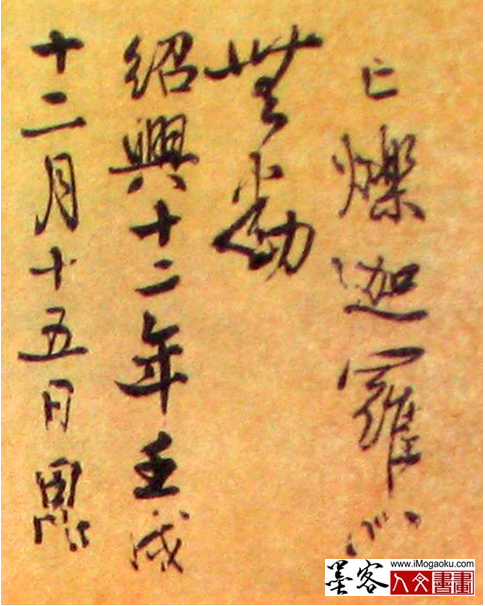 亡爍迦羅心
無動
紹興十二年壬戌
十二月十五日
www.iMogaoku.com
墨客人文書畫